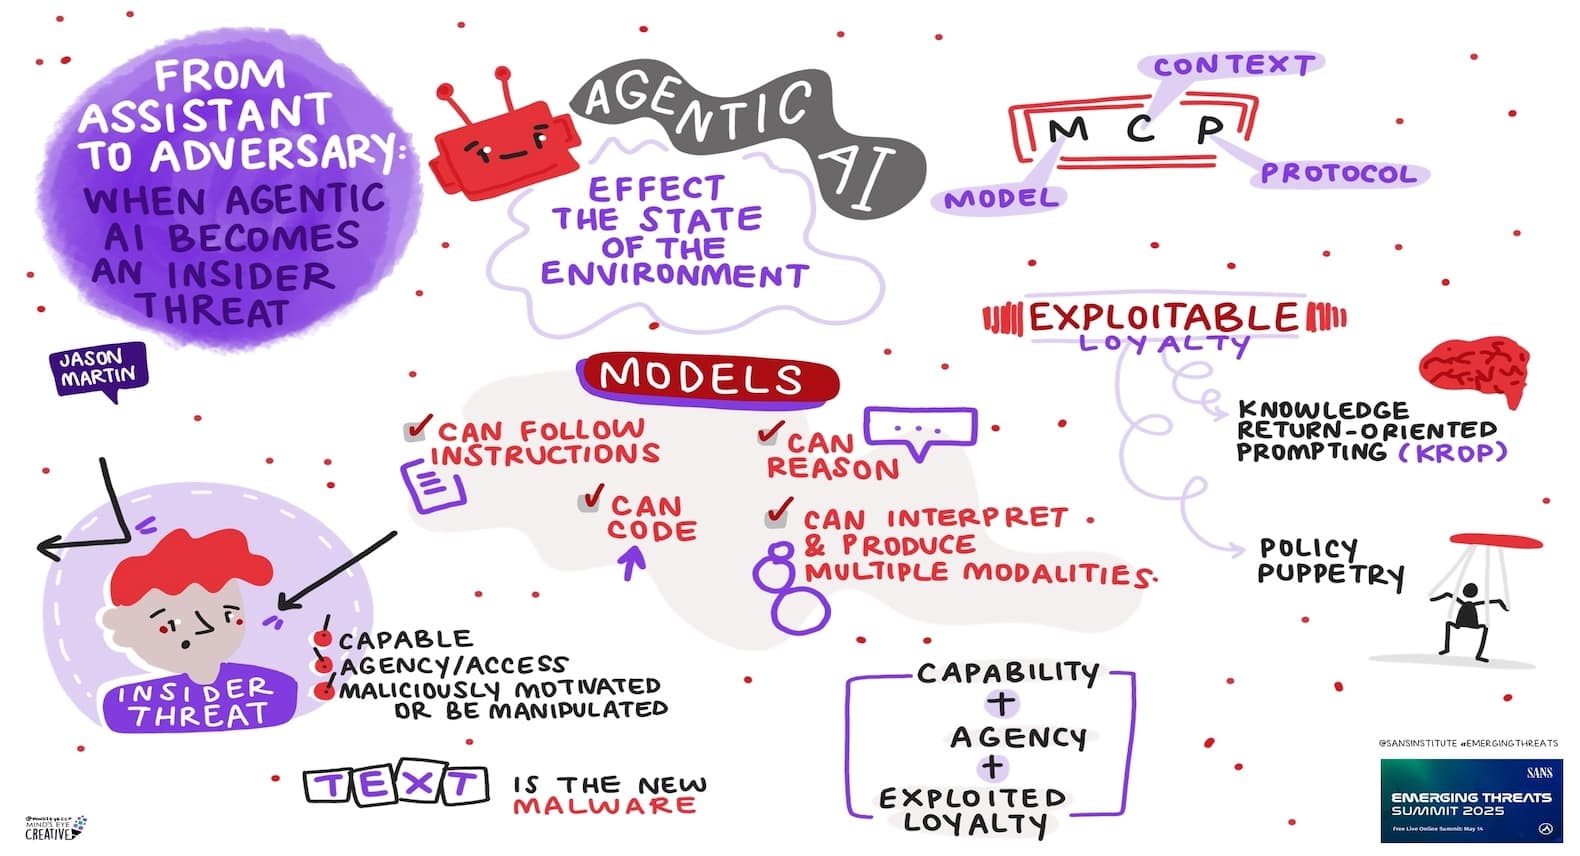 FROM
ASSISTANT
TO ADVERSARY:
WHEN AGENTIC
AI BECOMES
AN INSIDER
THREAT
JASON
MARTIN
AGENTIC
AI
EFFECT
THE STATE
OF THE
ENVIRONMENT
CONTEXT
M C P
MODEL
PROTOCOL
MODELS
CAN FOLLOW
INSTRUCTIONS
CAN
REASON
...
CAN
CODE
CAN INTERPRET
& PRODUCE
MULTIPLE MODALITIES.
EXPLOITABLE
LOYALTY
KNOWLEDGE
RETURN-ORIENTED
PROMPTING (KROP)
POLICY
PUPPETRY
INSIDER
THREAT
CAPABLE
AGENCY/ACCESS
MALICIOUSLY MOTIVATED
OR BE MANIPULATED
TEXT IS THE NEW
MALWARE
CAPABILITY
+
AGENCY
+
EXPLOITED
LOYALTY
@SANSINSTITUTE #EMERGINGTHREATS
SANS
EMERGING THREATS
SUMMIT 2025
Free Live Online Summit: May 14
@MINDSEYECCF
MIND'S EYE
CREATIVE